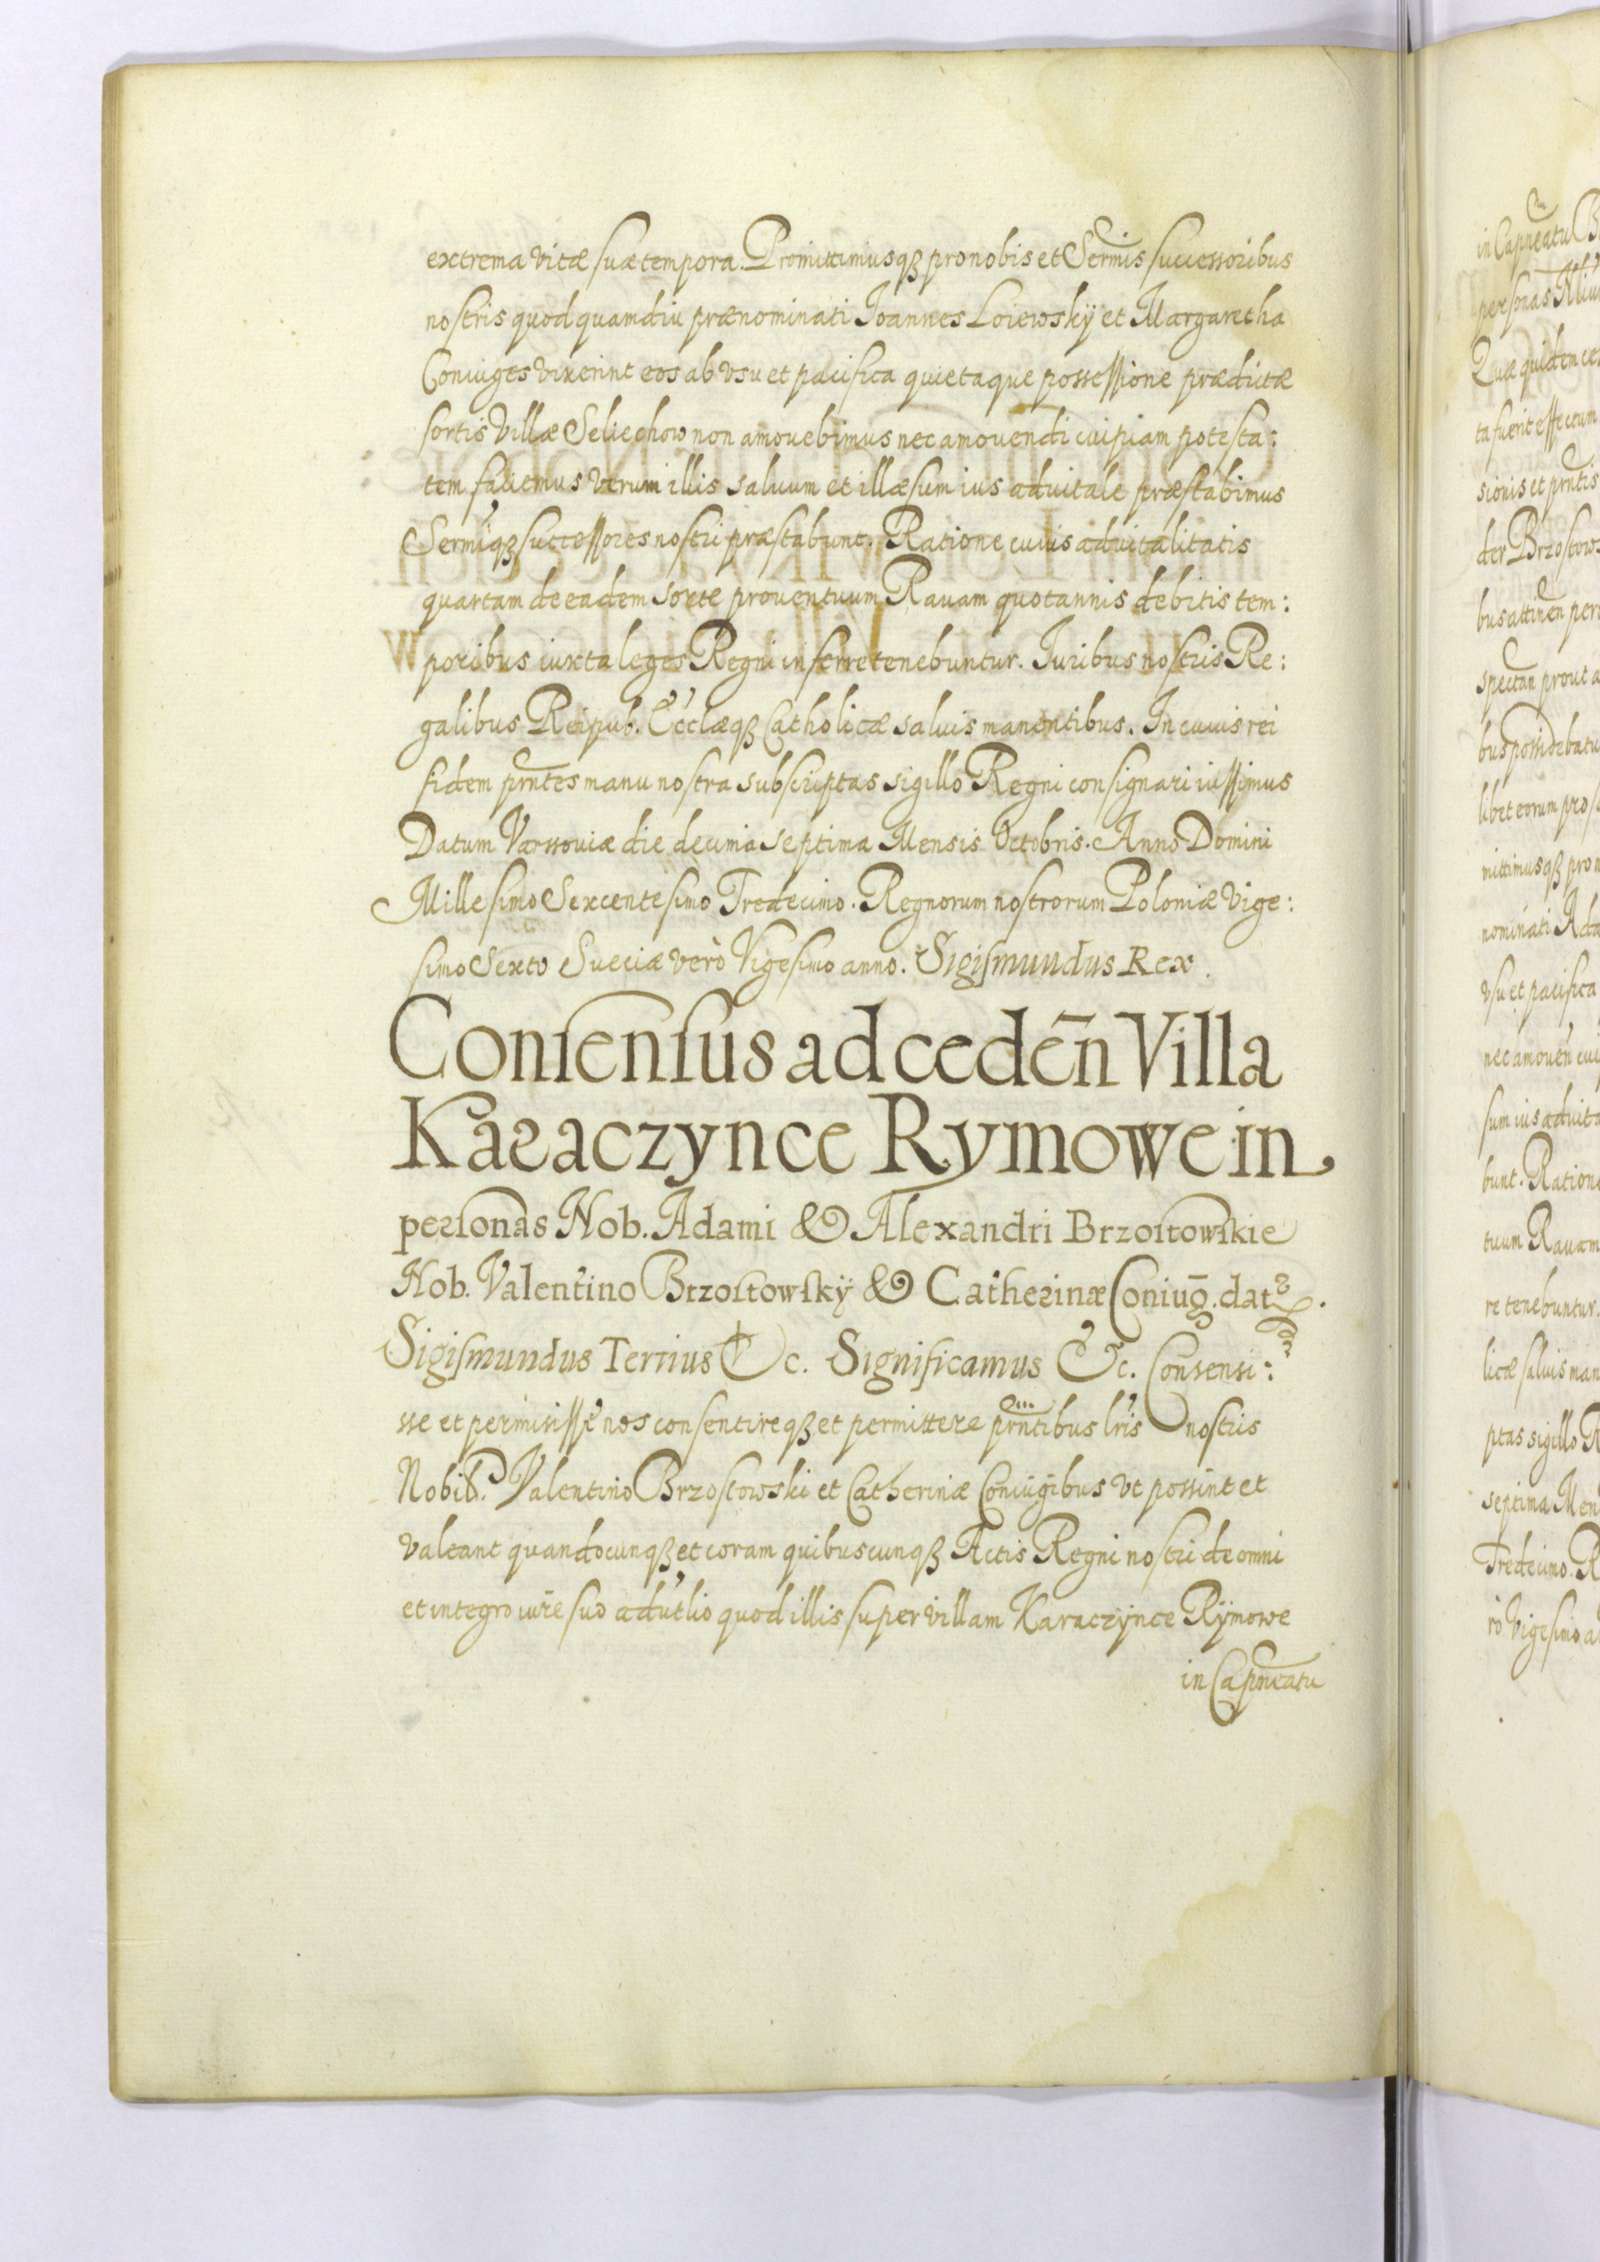 extrema vitæ suæ tempora. Promittimusqȝ pro nobis et Sermis successoribus
nostris quod quamdiu prænominati Joannes Loiewskÿ et Margaretha
Coniuges vixerint eos ab vsu et pacifica quietaque possessione prædictæ
sortis Villæ Seliechow non amouebimus nec amouendi cuipiam potesta:
tem faciemus verum illis saluum et illæsum ius aduitale præstabimus
Sermiqȝ successores nostri præstabunt. Ratione cuius aduitalitatis
quartam de eadem sorte prouentuum Rauam quotannis debitis tem:
poribus iuxta leges Regni inferre tenebuntur. Juribus nostris Re:
galibus Reipub. Ecclæqȝ Catholicæ saluis manentibus. In cuius rei
fidem prntes manu nostra subscriptas sigillo Regni consignari iussimus
Datum Varssouiæ die decima septima Mensis Octobris. Anno Domini
Millesimo Sexcentesimo Tredecimo. Regnorum nostrorum Poloniæ Vige:
simo Sexto Sueciæ verò Vigesimo anno. Sigismundus Rex.
Consensus ad ceden̄ Villa
Karaczynce Rymowe in
personas Nob. Adami & Alexandri Brzostowskie
Nob. Valentino Brzostowskÿ & Catherinæ Coniug̃. dat⁹.
Sigismundus Tertius &c. Significamus &c. Consensi:
sse et permisisse nos consentireqȝ et permittere prntibus lris nostris
Nobil. Valentino Brzostowski et Catherinæ Coniugibus vt possint et
valeant quandocunqȝ et coram quibuscunqȝ Actis Regni nostri de omni
et integro iure suo adutlio quod illis super villam Karaczÿnce Rÿmowe
in Capneatu
in Capneatu
personas
Quæ quidem
ta fuerit effectum
sionis et prntis
der
bus attinen
spectan prout
bus possidebatu
libet eorum
mittimusqȝ
nominati
vsu et pacifica
nec amouen
sum ius
bunt. Ratione
tuum Rauam
re tenebuntur.
licæ saluis
ptas sigillo
septima
Tredecimo.
rò Vigesimo